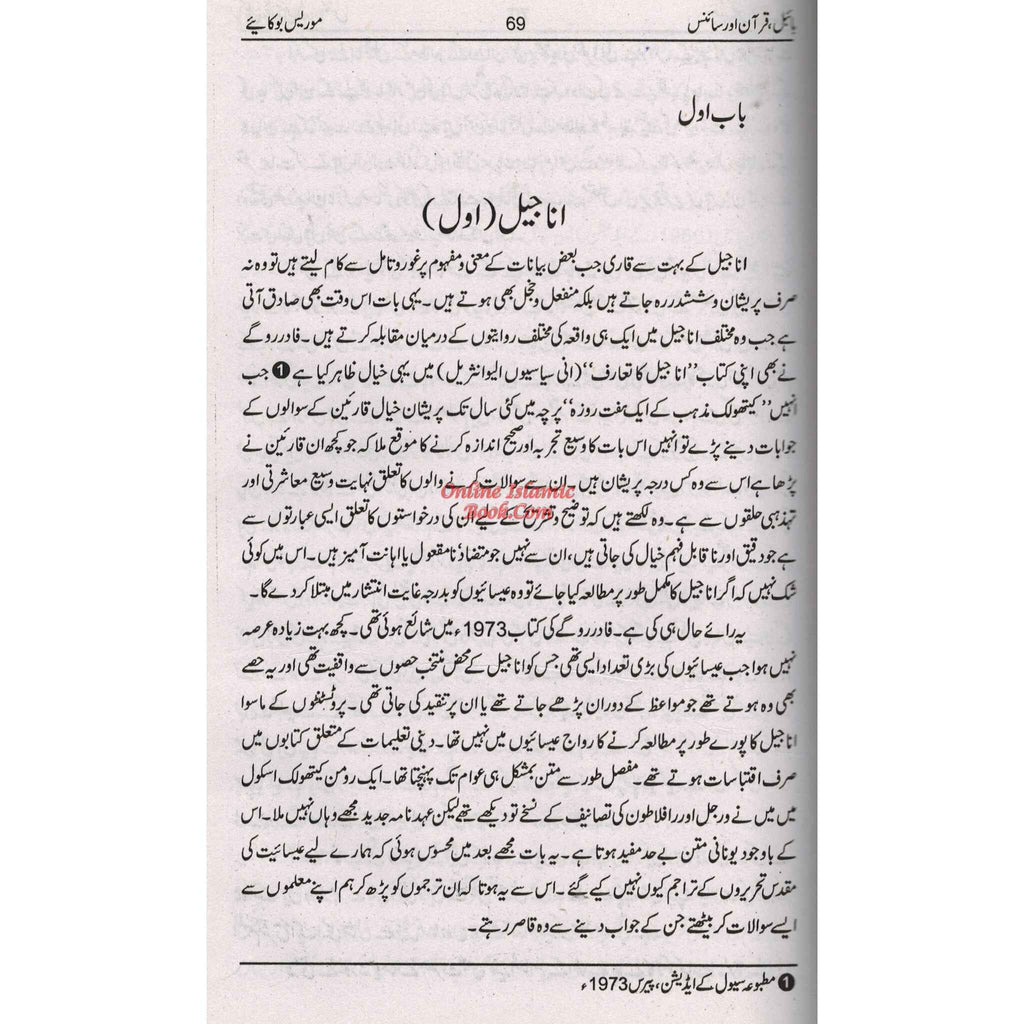 بائبل، قرآن اور سائنس 69 موریس بوکائیے
باب اول
اناجیل (اول)
اناجیل کے بہت سے قاری جب بعض بیانات کے معنی و مفہوم پر غور و تامل سے کام لیتے ہیں تو وہ نہ
صرف پریشان و ششدر رہ جاتے ہیں بلکہ منفعل و خجل بھی ہوتے ہیں۔ یہی بات اس وقت بھی صادق آتی
ہے جب وہ مختلف اناجیل میں ایک ہی واقعہ کی مختلف روایتوں کے درمیان مقابلہ کرتے ہیں۔ فادر روگے
نے بھی اپنی کتاب "اناجیل کا تعارف" (انی سیاسیوں الیوانژیل) میں یہی خیال ظاہر کیا ہے ❶ جب
انہیں "کیتھولک مذہب کے ایک ہفت روزہ" پرچہ میں کئی سال تک پریشان خیال قارئین کے سوالوں کے
جوابات دینے پڑے تو انہیں اس بات کا وسیع تجربہ اور صحیح اندازہ کرنے کا موقع ملا کہ جو کچھ ان قارئین نے
پڑھا ہے اس سے وہ کس درجہ پریشان ہیں۔ ان سے سوالات کرنے والوں کا تعلق نہایت وسیع معاشرتی اور
تہذیبی حلقوں سے ہے۔ وہ لکھتے ہیں کہ توضیح و تشریح کے لیے ان کی درخواستوں کا تعلق ایسی عبارتوں سے
Online Islamic
Book.Com
ہے جو دقیق اور ناقابل فہم خیال کی جاتی ہیں، ان سے نہیں جو متضاد نامقعول یا اہانت آمیز ہیں۔ اس میں کوئی
شک نہیں کہ اگر اناجیل کا مکمل طور پر مطالعہ کیا جائے تو وہ عیسائیوں کو بدرجہ غایت انتشار میں مبتلا کر دے گا۔
یہ رائے حال ہی کی ہے۔ فادر روگے کی کتاب 1973ء میں شائع ہوئی تھی۔ کچھ بہت زیادہ عرصہ
نہیں ہوا جب عیسائیوں کی بڑی تعداد ایسی تھی جس کو اناجیل کے محض منتخب حصوں سے واقفیت تھی اور یہ حصے
بھی وہ ہوتے تھے جو مواعظ کے دوران پڑھے جاتے تھے یا ان پر تنقید کی جاتی تھی۔ پروٹسٹنٹوں کے ماسوا
اناجیل کا پورے طور پر مطالعہ کرنے کا رواج عیسائیوں میں نہیں تھا۔ دینی تعلیمات کے متعلق کتابوں میں
صرف اقتباسات ہوتے تھے۔ مفصل طور سے متن بمشکل ہی عوام تک پہنچتا تھا۔ ایک رومن کیتھولک اسکول
میں میں نے ورجل اور رافلاطون کی تصانیف کے نسخے تو دیکھے تھے لیکن عہد نامہ جدید مجھے وہاں نہیں ملا۔ اس
کے باوجود یونانی متن بے حد مفید ہوتا ہے۔ یہ بات مجھے بعد میں محسوس ہوئی کہ ہمارے لیے عیسائیت کی
مقدس تحریروں کے تراجم کیوں نہیں کیے گئے۔ اس سے یہ ہوتا کہ ان ترجموں کو پڑھ کر ہم اپنے معلموں سے
ایسے سوالات کر بیٹھتے جن کے جواب دینے سے وہ قاصر رہتے۔
❶ مطبوعہ سیول کے ایڈیشن، پیرس 1973ء